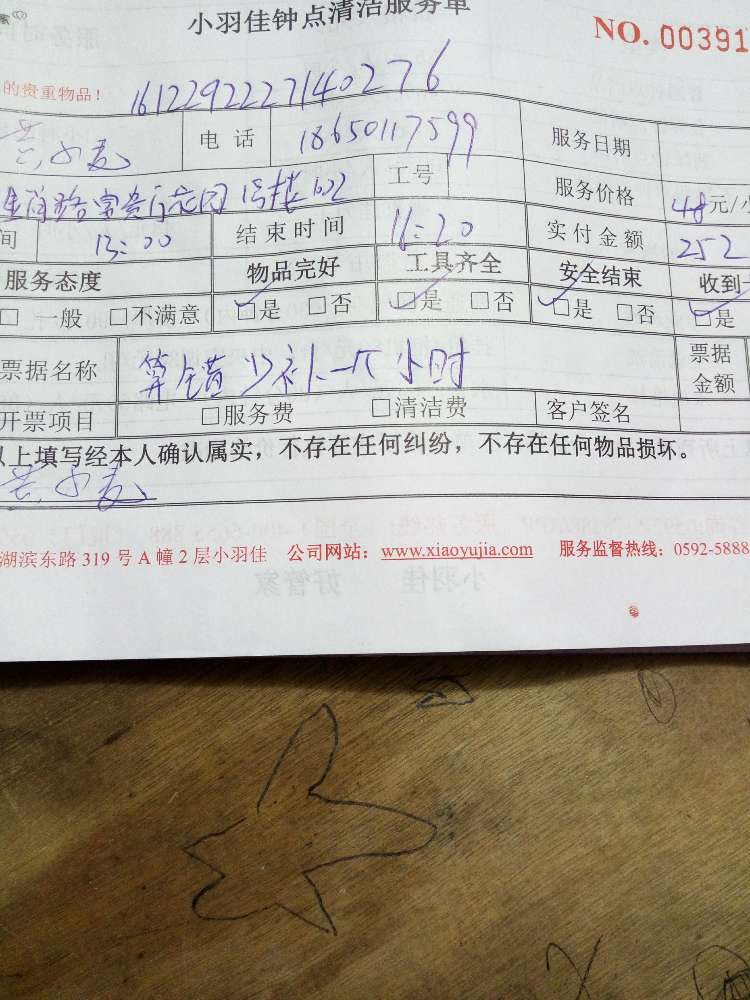 小羽佳钟点清洁服务单
NO. 00391
的贵重物品！ 1612292227140276
电话 18650117599 服务日期
富贵花园 1号楼102 工号 服务价格 48元/小
间 13:00 结束时间 16:20 实付金额 252
服务态度 物品完好 工具齐全 安全结束 收到
□一般 □不满意 □是 □否 □是 □否 □是 □否 □是
票据名称 算错少补一个小时 票据金额
开票项目 □服务费 □清洁费 客户签名
以上填写经本人确认属实，不存在任何纠纷，不存在任何物品损坏。
湖滨东路 319 号 A 幢 2 层小羽佳 公司网站：www.xiaoyujia.com 服务监督热线：0592-5888